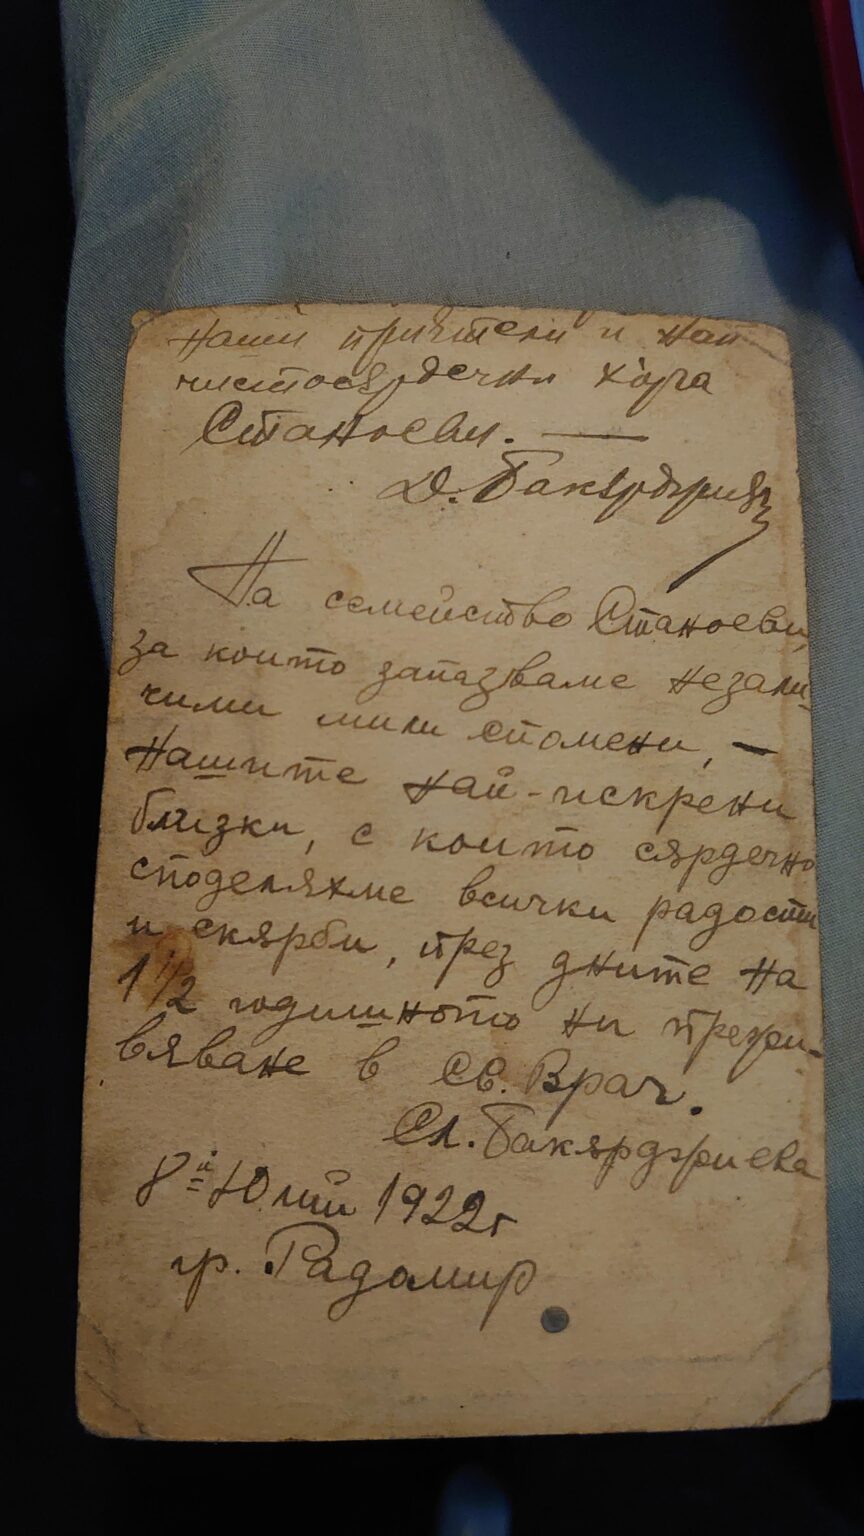 наши приятели и най
чистосярдечни хора
Станоеви. —
Д. Бакярджиев
На семейство Станоеви,
за които запазваме незали-
чими мили спомени, —
Нашите най-искрени
близки, с които сярдечно
споделяхме всички радости
и скярби, през дните на
1 1/2 годишното ни прежи-
вяване в Св. Врач.
Сл. Бакярджиева
8й Юлий 1922г
гр. Радомир